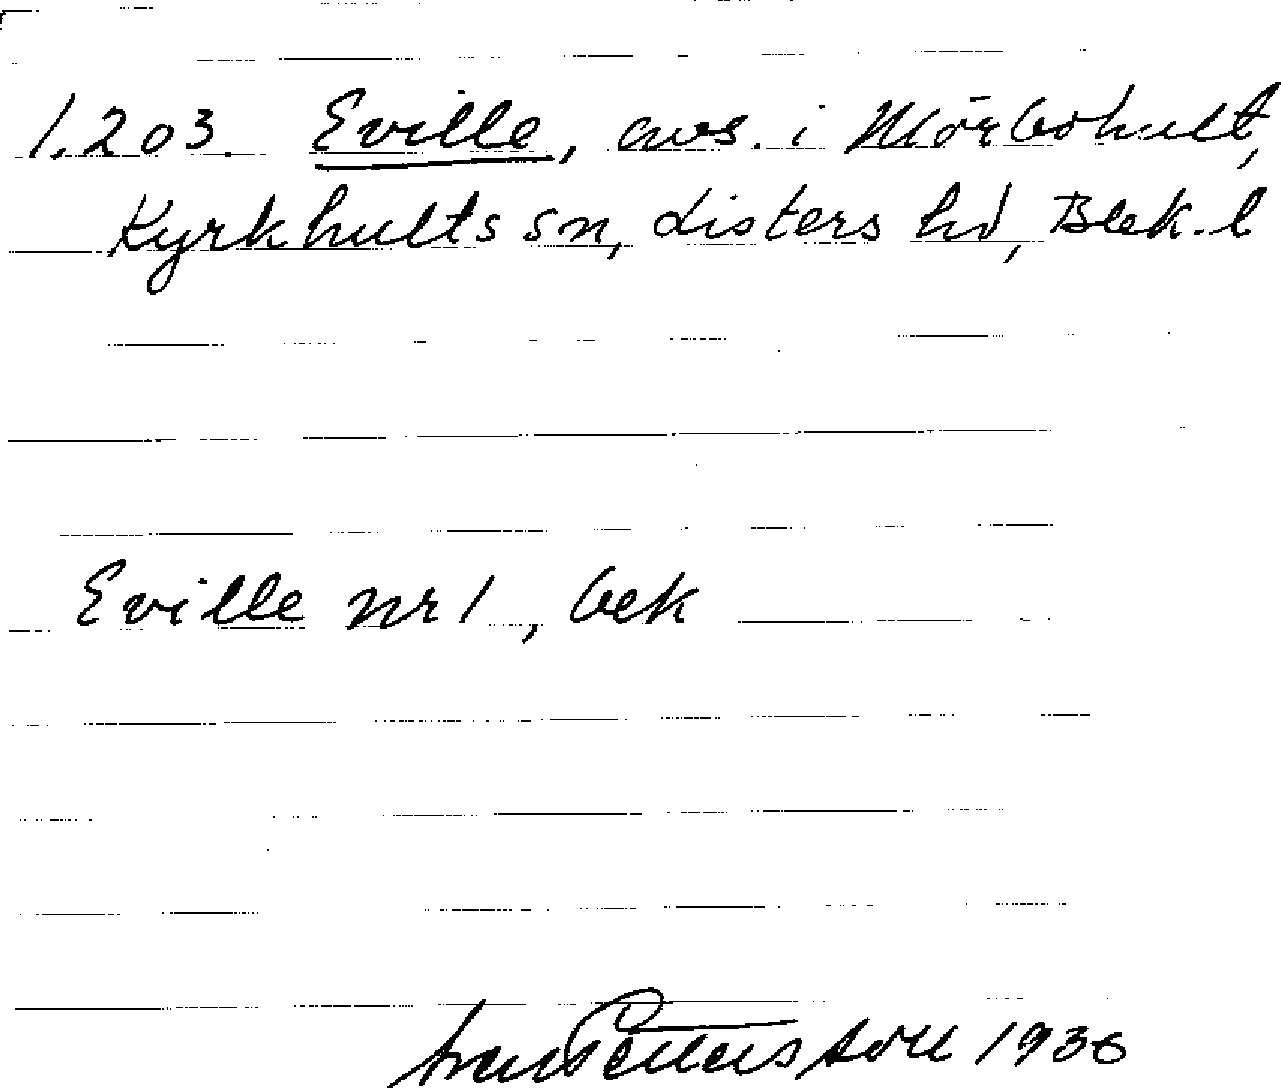 1.203. Eville, avs. i Mörbohult,
Kyrkhults sn, Listers hd, Blek. l
Eville nr 1, bek
Pettersson 1936